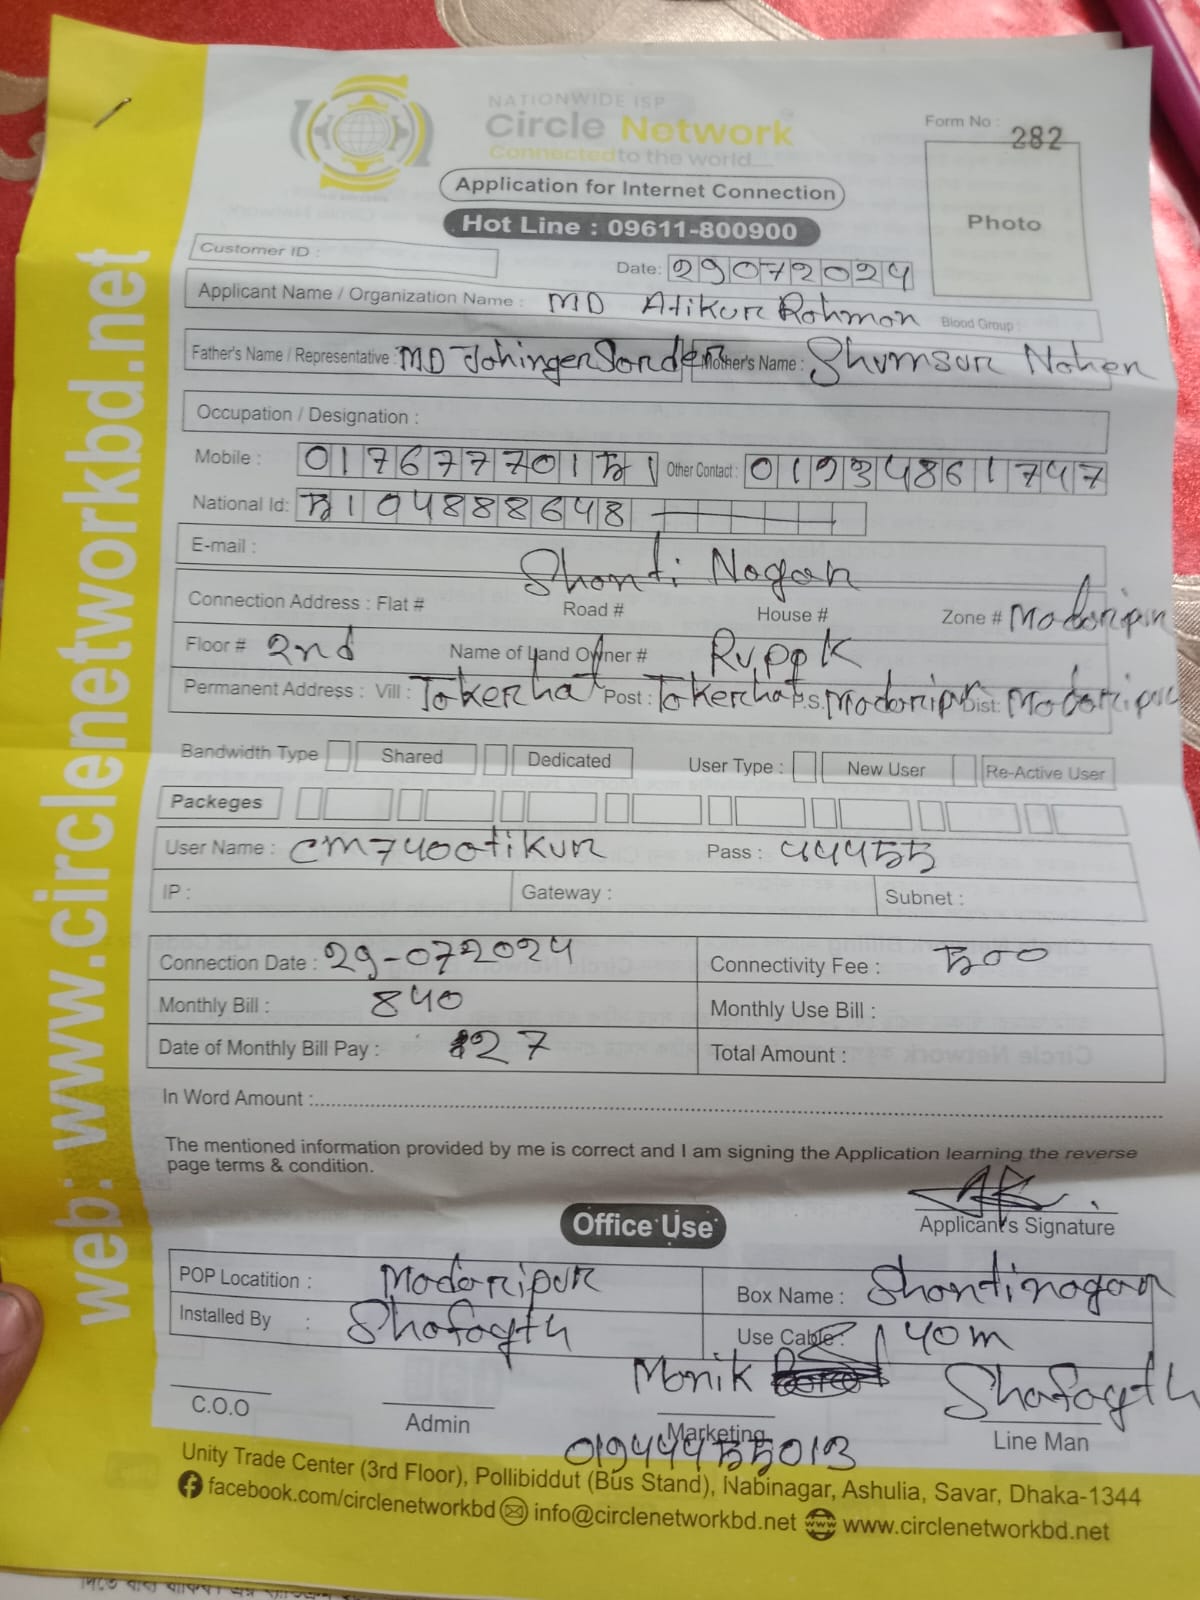 NATIONWIDE ISP
Circle Network
Connected to the world
Form No : 282
Application for Internet Connection
Photo
Hot Line : 09611-800900
Customer ID :
Date: 29072024
Applicant Name / Organization Name : MD Atikur Rohmon Blood Group :
Father's Name / Representative : MD Johinger Sorder Mother's Name : Shumsur Noher
Occupation / Designation :
Mobile : 01767770151 Other Contact : 01934861747
National Id: 5104888648
E-mail :
Shonti Nogor
Connection Address : Flat # Road # House # Zone # Modoripur
Floor # 2nd Name of Land Owner #
Permanent Address : Vill : Tokerhat Post : Tokerhat P.S. Modoripur Dist: Modoripur
Bandwidth Type Shared Dedicated User Type : New User Re-Active User
Packeges
User Name : cm7400tikur Pass : 44455
IP : Gateway : Subnet :
Connection Date : 29-072024 Connectivity Fee : 500
Monthly Bill : 840 Monthly Use Bill :
Date of Monthly Bill Pay : 27 Total Amount :
In Word Amount :
The mentioned information provided by me is correct and I am signing the Application learning the reverse
page terms & condition.
Applicant's Signature
Office Use
POP Locatition : Modoripur Box Name : Shontinogor
Installed By : Shofoyth Use Cable : 40m
Monik Shofoyth
C.O.O Admin Marketing Line Man
01944455013
Unity Trade Center (3rd Floor), Pollibiddut (Bus Stand), Nabinagar, Ashulia, Savar, Dhaka-1344
facebook.com/circlenetworkbd info@circlenetworkbd.net www.circlenetworkbd.net
web: www.circlenetworkbd.net